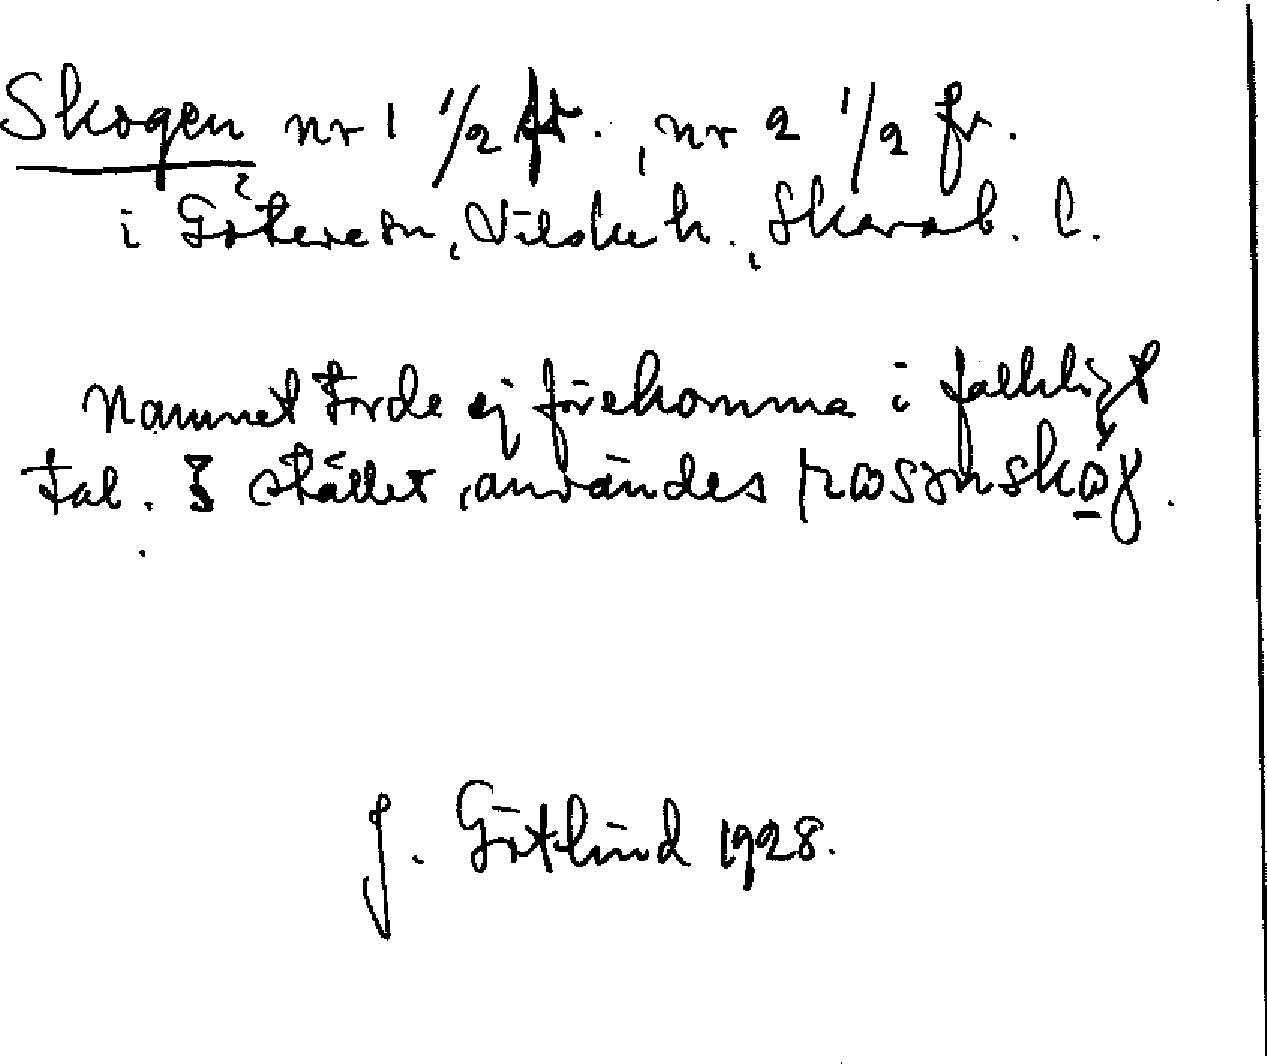 Skogen nr 1 1/2 fr., nr 2 1/2 fr.
i Götene sn, Vilske h., Skarab. l.
Namnet torde ej förekomma i folkligt
tal. I stället användes
J. Götlind 1928.